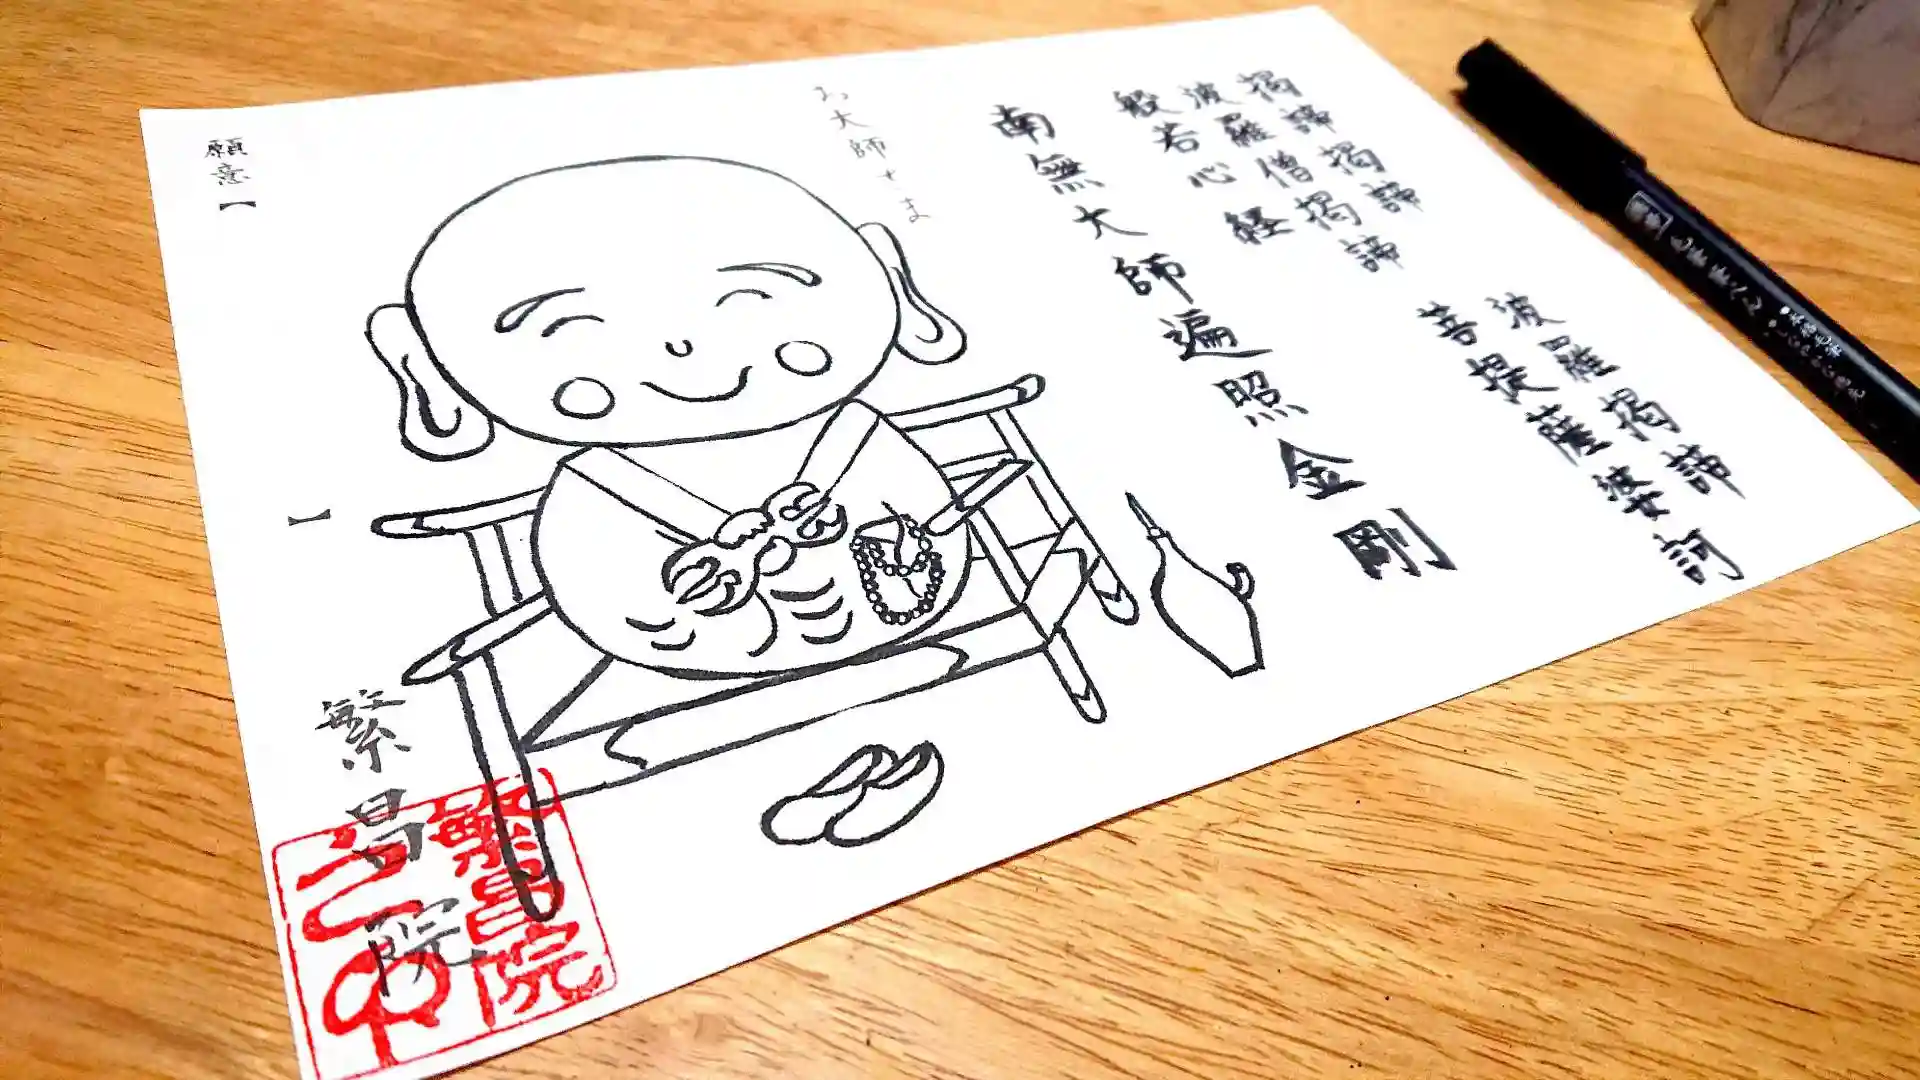 掲諦掲諦 波羅掲諦
波羅僧掲諦 菩提薩婆訶
般若心経
南無大師遍照金剛
お大師さま
願意【 】
繁昌院
繁昌院
之印